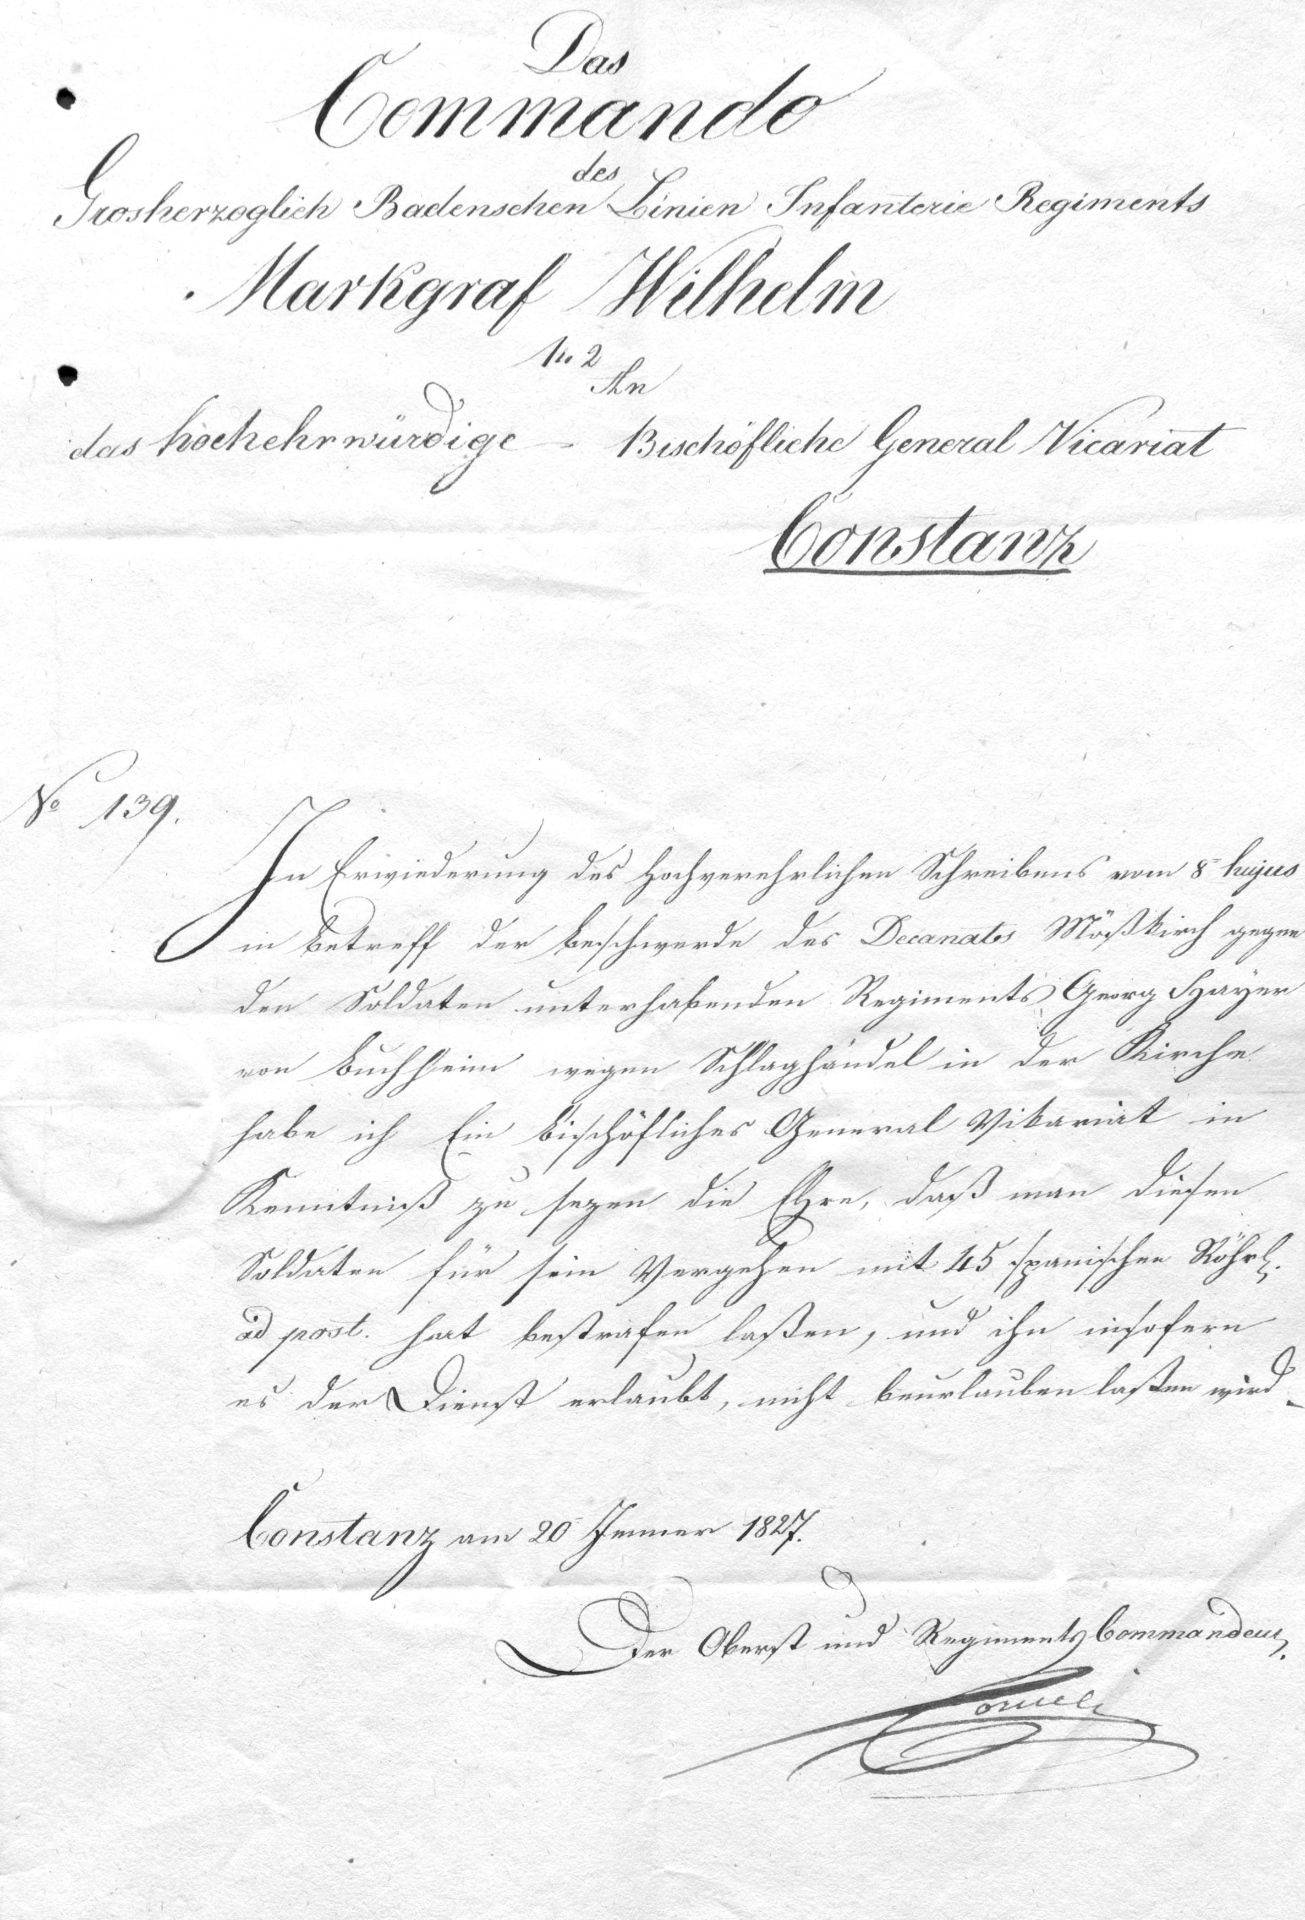 Das
Commando
des
Grosherzoglich Badenschen Linien Infanterie Regiments
Markgraf Wilhelm
No 2
An
das hochehrwürdige – Bischöfliche General Vicariat
Constanz
No 139.
In Erwiederung des hochverehrlichen Schreibens vom 8 hujus
in betreff der beschwerde des Decanats Mößkirch gegen
den Soldaten unterhabenden Regiments Georg Hayer
von buchheim wegen Schlaghändel in der Kirche
habe ich Ein bischöfliches General Vikariat in
Kenntniß zu sezen die Ehre, daß man diesen
Soldaten für sein Vergehen mit 45 spanischen Röhrl.
ad post. hat bestrafen laßen, und ihn insofern
es der Dienst erlaubt, nicht beurlauben laßen wird.
Constanz am 20 Jenner 1827.
Der Oberst und Regiments Commandeur.